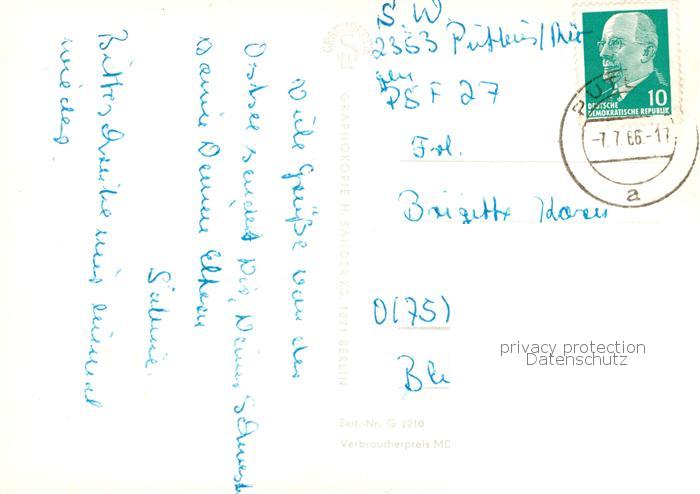 Viele Grüße von der
Ostsee sendet Dir, Deiner Schwest
sowie Deinen Eltern
Sabine.
Bitte schreibe mir einmal
wieder.
GRAPHOKOPIE H. SANDER KG, 1071 BERLIN
S. W.
2353 Putbus/Rü
gen
PSF 27
Frl.
Brigitte
O(75)
DEUTSCHE
DEMOKRATISCHE REPUBLIK
10
PUT
-7.7.66.-17
a
privacy protection
Datenschutz
Best.-Nr. G 2210
Verbraucherpreis MD